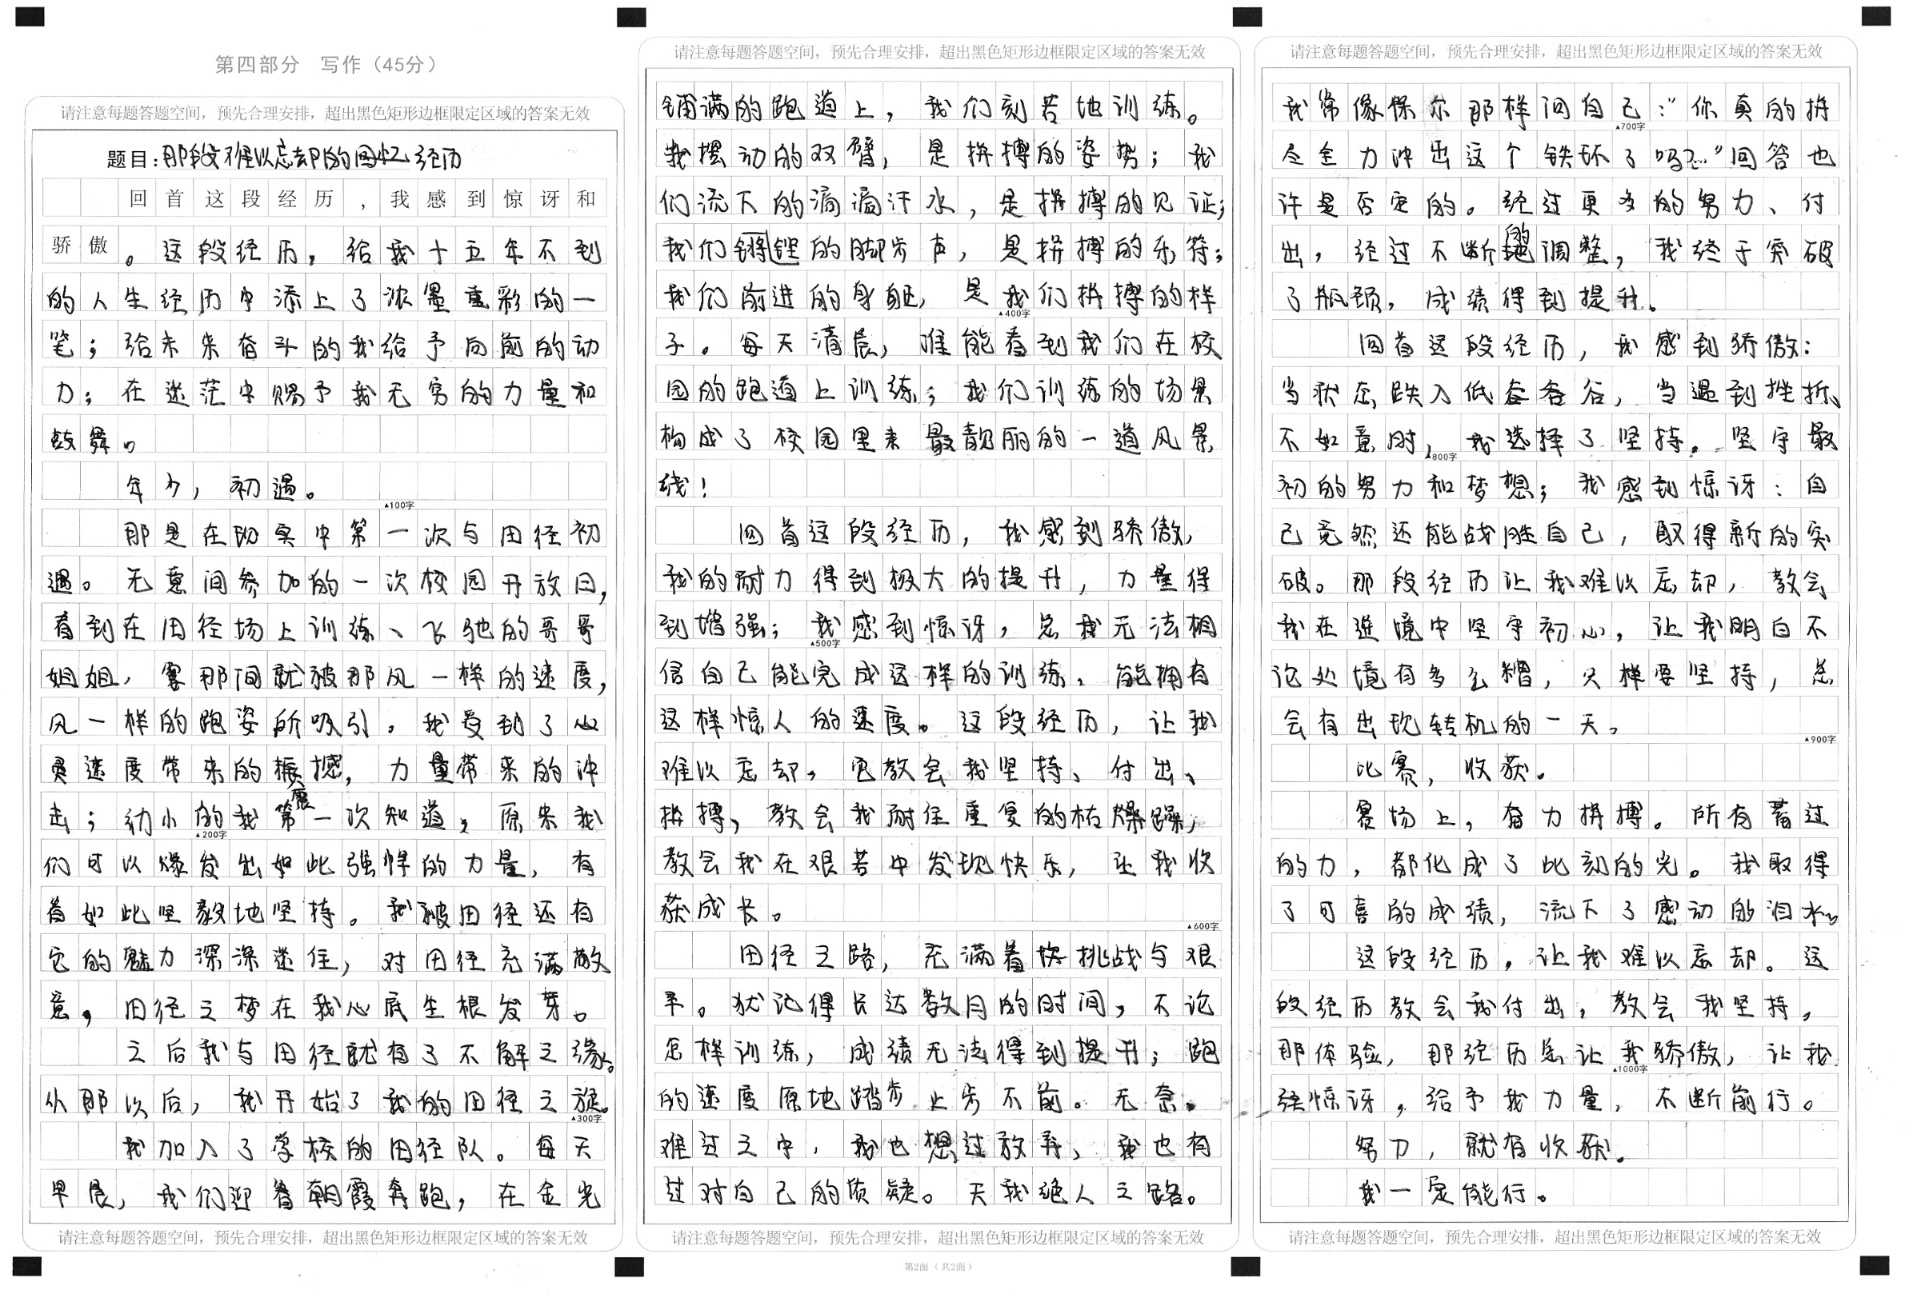 第四部分 写作（45分）
请注意每题答题空间，预先合理安排，超出黑色矩形边框限定区域的答案无效
题目：那段难以忘却的回忆经历
回首这段经历，我感到惊讶和
骄傲。这段经历，给我十五年不到
的人生经历中添上了浓墨重彩的一
笔；给未来奋斗的我给予向前的动
力；在迷茫中赐予我无穷的力量和
鼓舞。
年少，初遇。
▲100字
那是在现实中第一次与田径初
遇。无意间参加的一次校园开放日，
看到在田径场上训练、飞驰的哥哥
姐姐，霎那间就被那风一样的速度，
风一样的跑姿所吸引。我受到了心
灵速度带来的振撼，力量带来的冲
震
击；幼小的我第一次知道，原来我
▲200字
们可以爆发出如此强悍的力量，有
着如此坚毅地坚持。我被田径还有
它的魅力深深迷住，对田径充满敬
意，田径之梦在我心底生根发芽。
之后我与田径就有了不解之缘。
从那以后，我开始了我的田径之旅。
▲300字
我加入了学校的田径队。每天
早晨，我们迎着朝霞奔跑，在金光
请注意每题答题空间，预先合理安排，超出黑色矩形边框限定区域的答案无效
请注意每题答题空间，预先合理安排，超出黑色矩形边框限定区域的答案无效
铺满的跑道上，我们刻苦地训练。
我摆动的双臂，是拼搏的姿势；我
们流下的滴滴汗水，是拼搏的见证；
我们铿锵的脚步声，是拼搏的乐符；
我们前进的身躯，是我们拼搏的样
▲400字
子。每天清晨，准能看到我们在校
园的跑道上训练；我们训练的场景
构成了校园里来最靓丽的一道风景
线！
回首这段经历，我感到骄傲，
我的耐力得到极大的提升，力量得
到增强；我感到惊讶，总我无法相
▲500字
信自己能完成这样的训练，能拥有
这样惊人的速度。这段经历，让我
难以忘却，它教会我坚持、付出、
拼搏，教会我耐住重复的枯燥躁，
教会我在艰苦中发现快乐，让我收
获成长。
▲600字
田径之路，充满着挑战与艰
辛。犹记得长达数月的时间，不论
怎样训练，成绩无法得到提升；跑
的速度原地踏步止步不前。无奈、
难过之中，我也想过放弃，我也有
过对自己的质疑。天我绝人之路。
请注意每题答题空间，预先合理安排，超出黑色矩形边框限定区域的答案无效
第2面（共2面）
请注意每题答题空间，预先合理安排，超出黑色矩形边框限定区域的答案无效
我常像保尔那样问自己：“你真的拼
▲700字
尽全力冲出这个铁环了吗？”回答也
许是否定的。经过更多的努力、付
出，经过不断的调整，我终于突破
了瓶颈，成绩得到提升。
回首这段经历，我感到骄傲：
当状态跌入低谷，当遇到挫折、
不如意时，我选择了坚持，坚守最
▲800字
初的努力和梦想；我感到惊讶：自
己竟然还能战胜自己，取得新的突
破。那段经历让我难以忘却，教会
我在逆境中坚守初心，让我明白不
论处境有多么糟，只样要坚持，总
会有出现转机的一天。
▲900字
比赛，收获。
赛场上，奋力拼搏。所有蓄过
的力，都化成了此刻的光。我取得
了可喜的成绩，流下了感动的泪水。
这段经历，让我难以忘却。这
段经历教会我付出，教会我坚持。
那体验，那经历总让我骄傲，让我
▲1000字
惊讶，给予我力量，不断前行。
努力，就有收获。
我一定能行。
请注意每题答题空间，预先合理安排，超出黑色矩形边框限定区域的答案无效